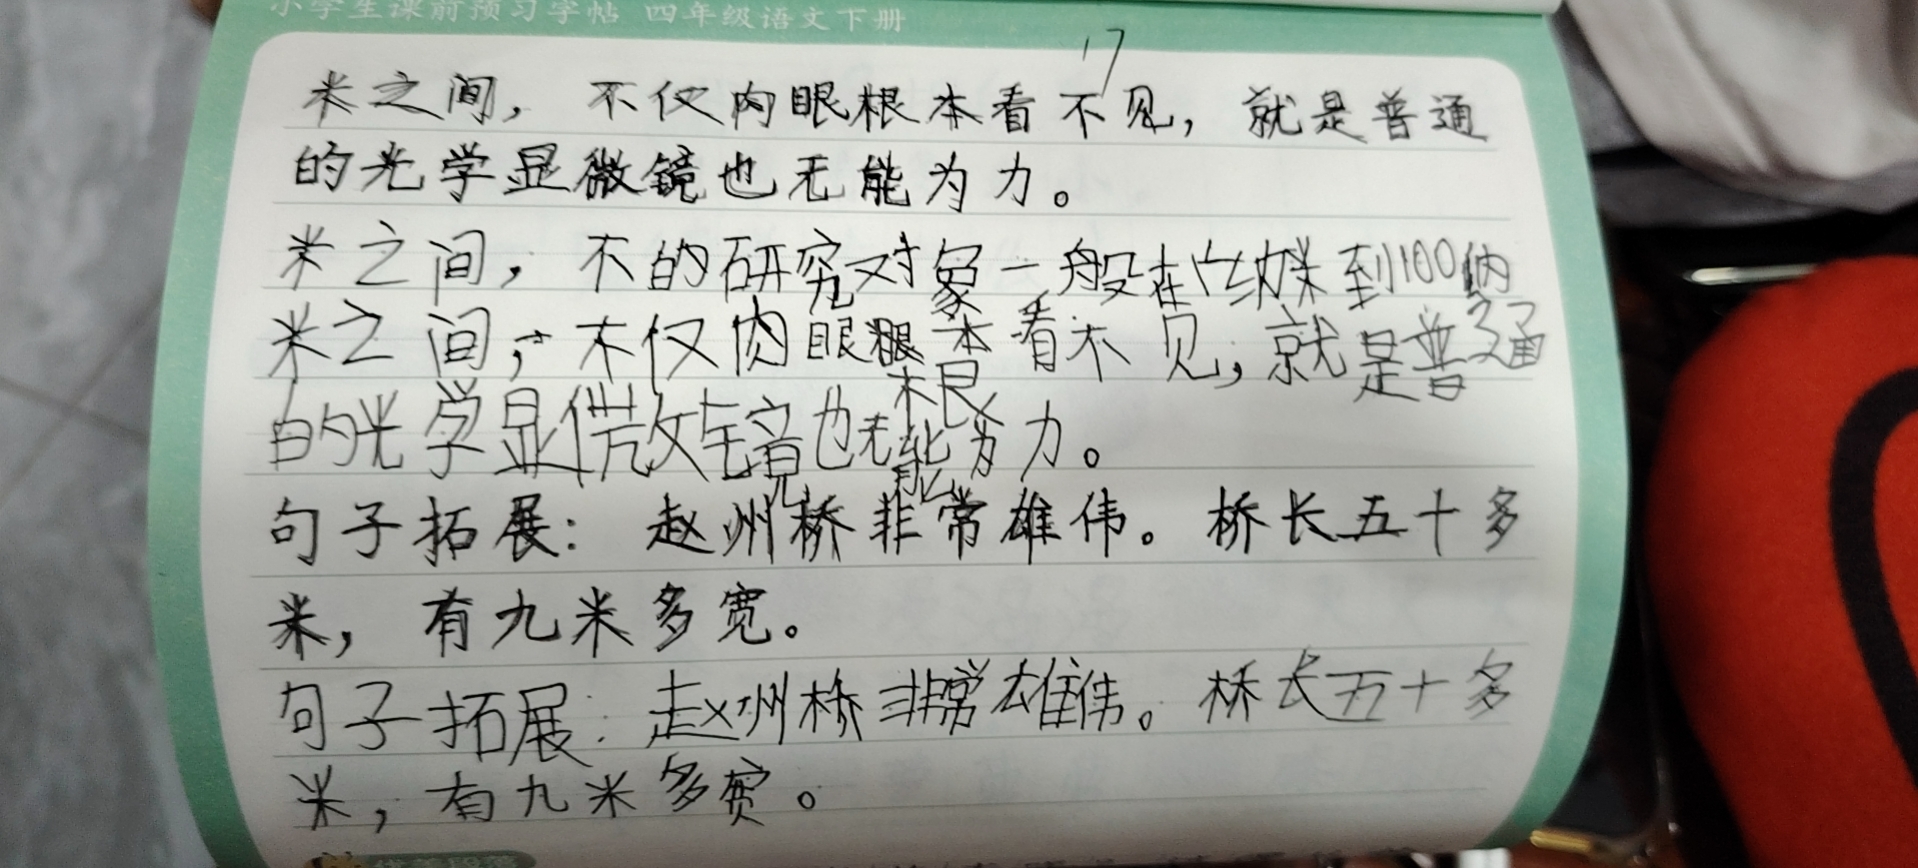 小学生课前预习字帖 四年级语文下册
17
米之间，不仅肉眼根本看不见，就是普通
的光学显微镜也无能为力。
米之间，不的研究对象一般在1纳米到100纳
米之间，不仅肉眼根本看不见，就是普通
根
的光学显微镜也无能为力。
句子拓展：赵州桥非常雄伟。桥长五十多
米，有九米多宽。
句子拓展：赵州桥非常雄伟。桥长五十多
米，有九米多宽。
优美段落